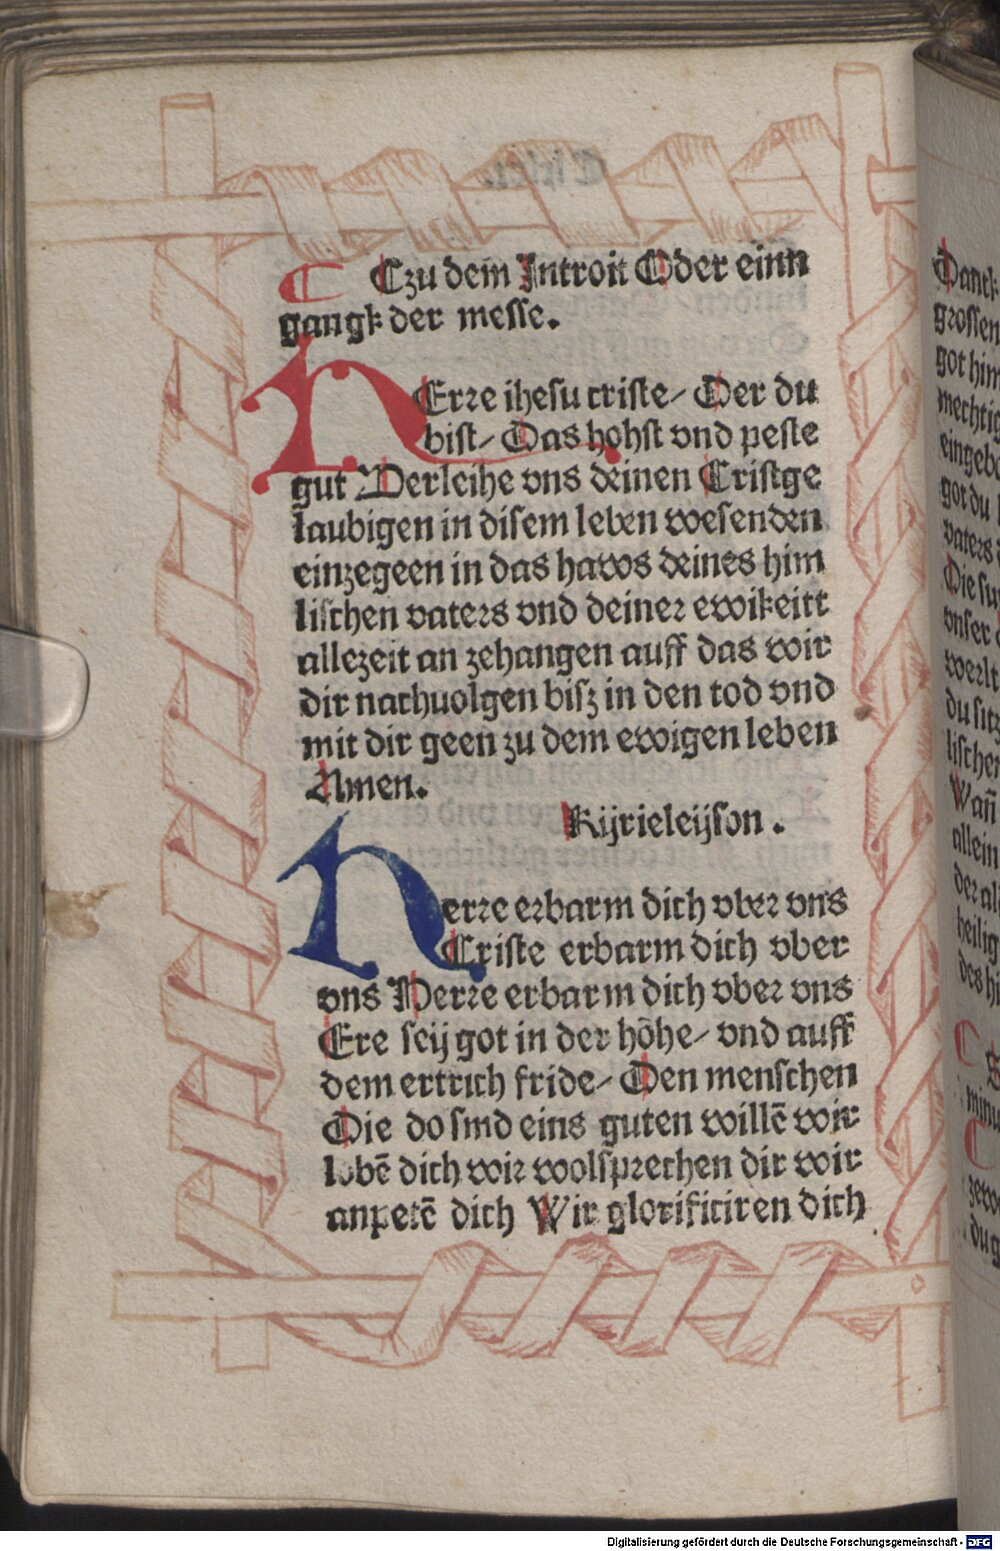 Czu dem Introit Oder einn
gangk der messe.
HErre ihesu criste/ Der du
bist/ Das hohst vnd peste
gut Verleihe vns deinen Cristge
laubigen in disem leben wesenden
einzegeen in das haws deines him
lischen vaters vnd deiner ewikeitt
allezeit an zehangen auff das wir
dir nachuolgen bisz in den tod vnd
mit dir geen zu dem ewigen leben
Amen.
Kijrieleijson.
Herre erbarm dich vber vns
Criste erbarm dich vber
vns Herre erbarm dich vber vns
Ere seij got in der höhe/ vnd auff
dem ertrich fride/ Den menschen
Die do sind eins guten willē wir
lobē dich wir wolsprechen dir wir
anpetē dich Wir glorificiren dich
Danck
grossen
got him
mechtig
eingebo
got du
vaters
Die su
vnser
werlt
du sitz
lischen
Wañ
allein
der al
heilig
des hi
minu
du g
Digitalisierung gefördert durch die Deutsche Forschungsgemeinschaft - DFG